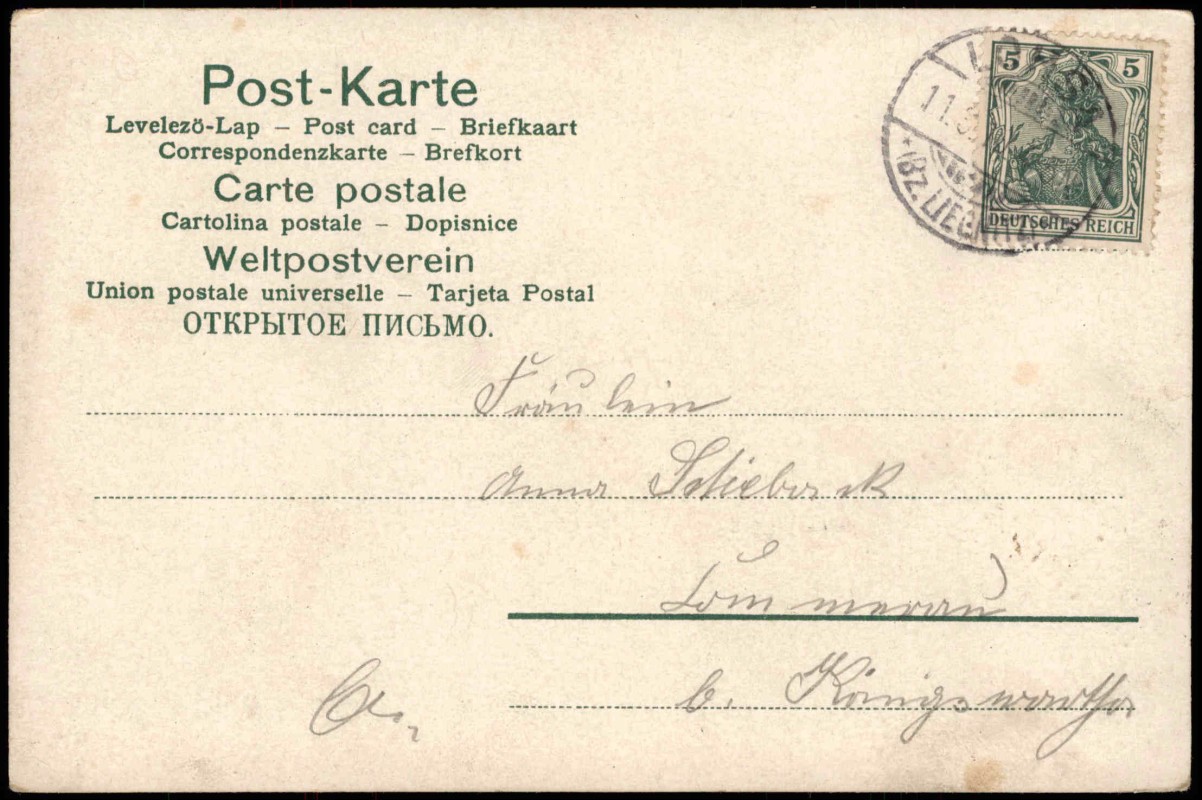 Post-Karte
Levelezö-Lap – Post card – Briefkaart
Correspondenzkarte – Brefkort
Carte postale
Cartolina postale – Dopisnice
Weltpostverein
Union postale universelle – Tarjeta Postal
ОТКРЫТОЕ ПИСЬМО.
5 5
DEUTSCHES REICH
11.3
*(BZ. LIEGNITZ)
Fräulein
Anna
Commerau
b. Königswartha